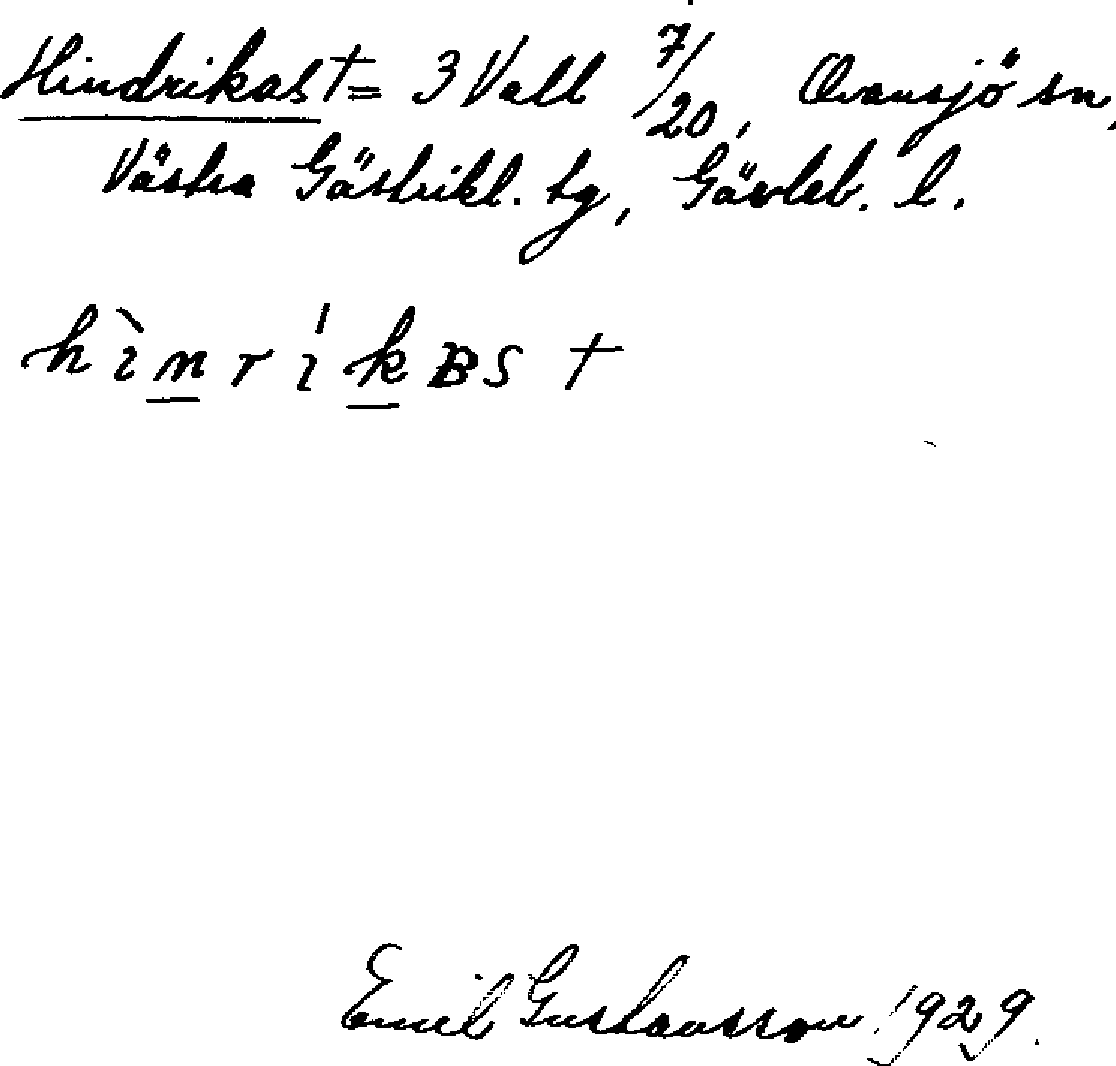 Hindrikas† = 3 Vall 7/20, Ovansjö sn,
Västra Gästrikl. tg, Gävleb. l.
hìnríkʙs †
Emil Gustavsson 1929.